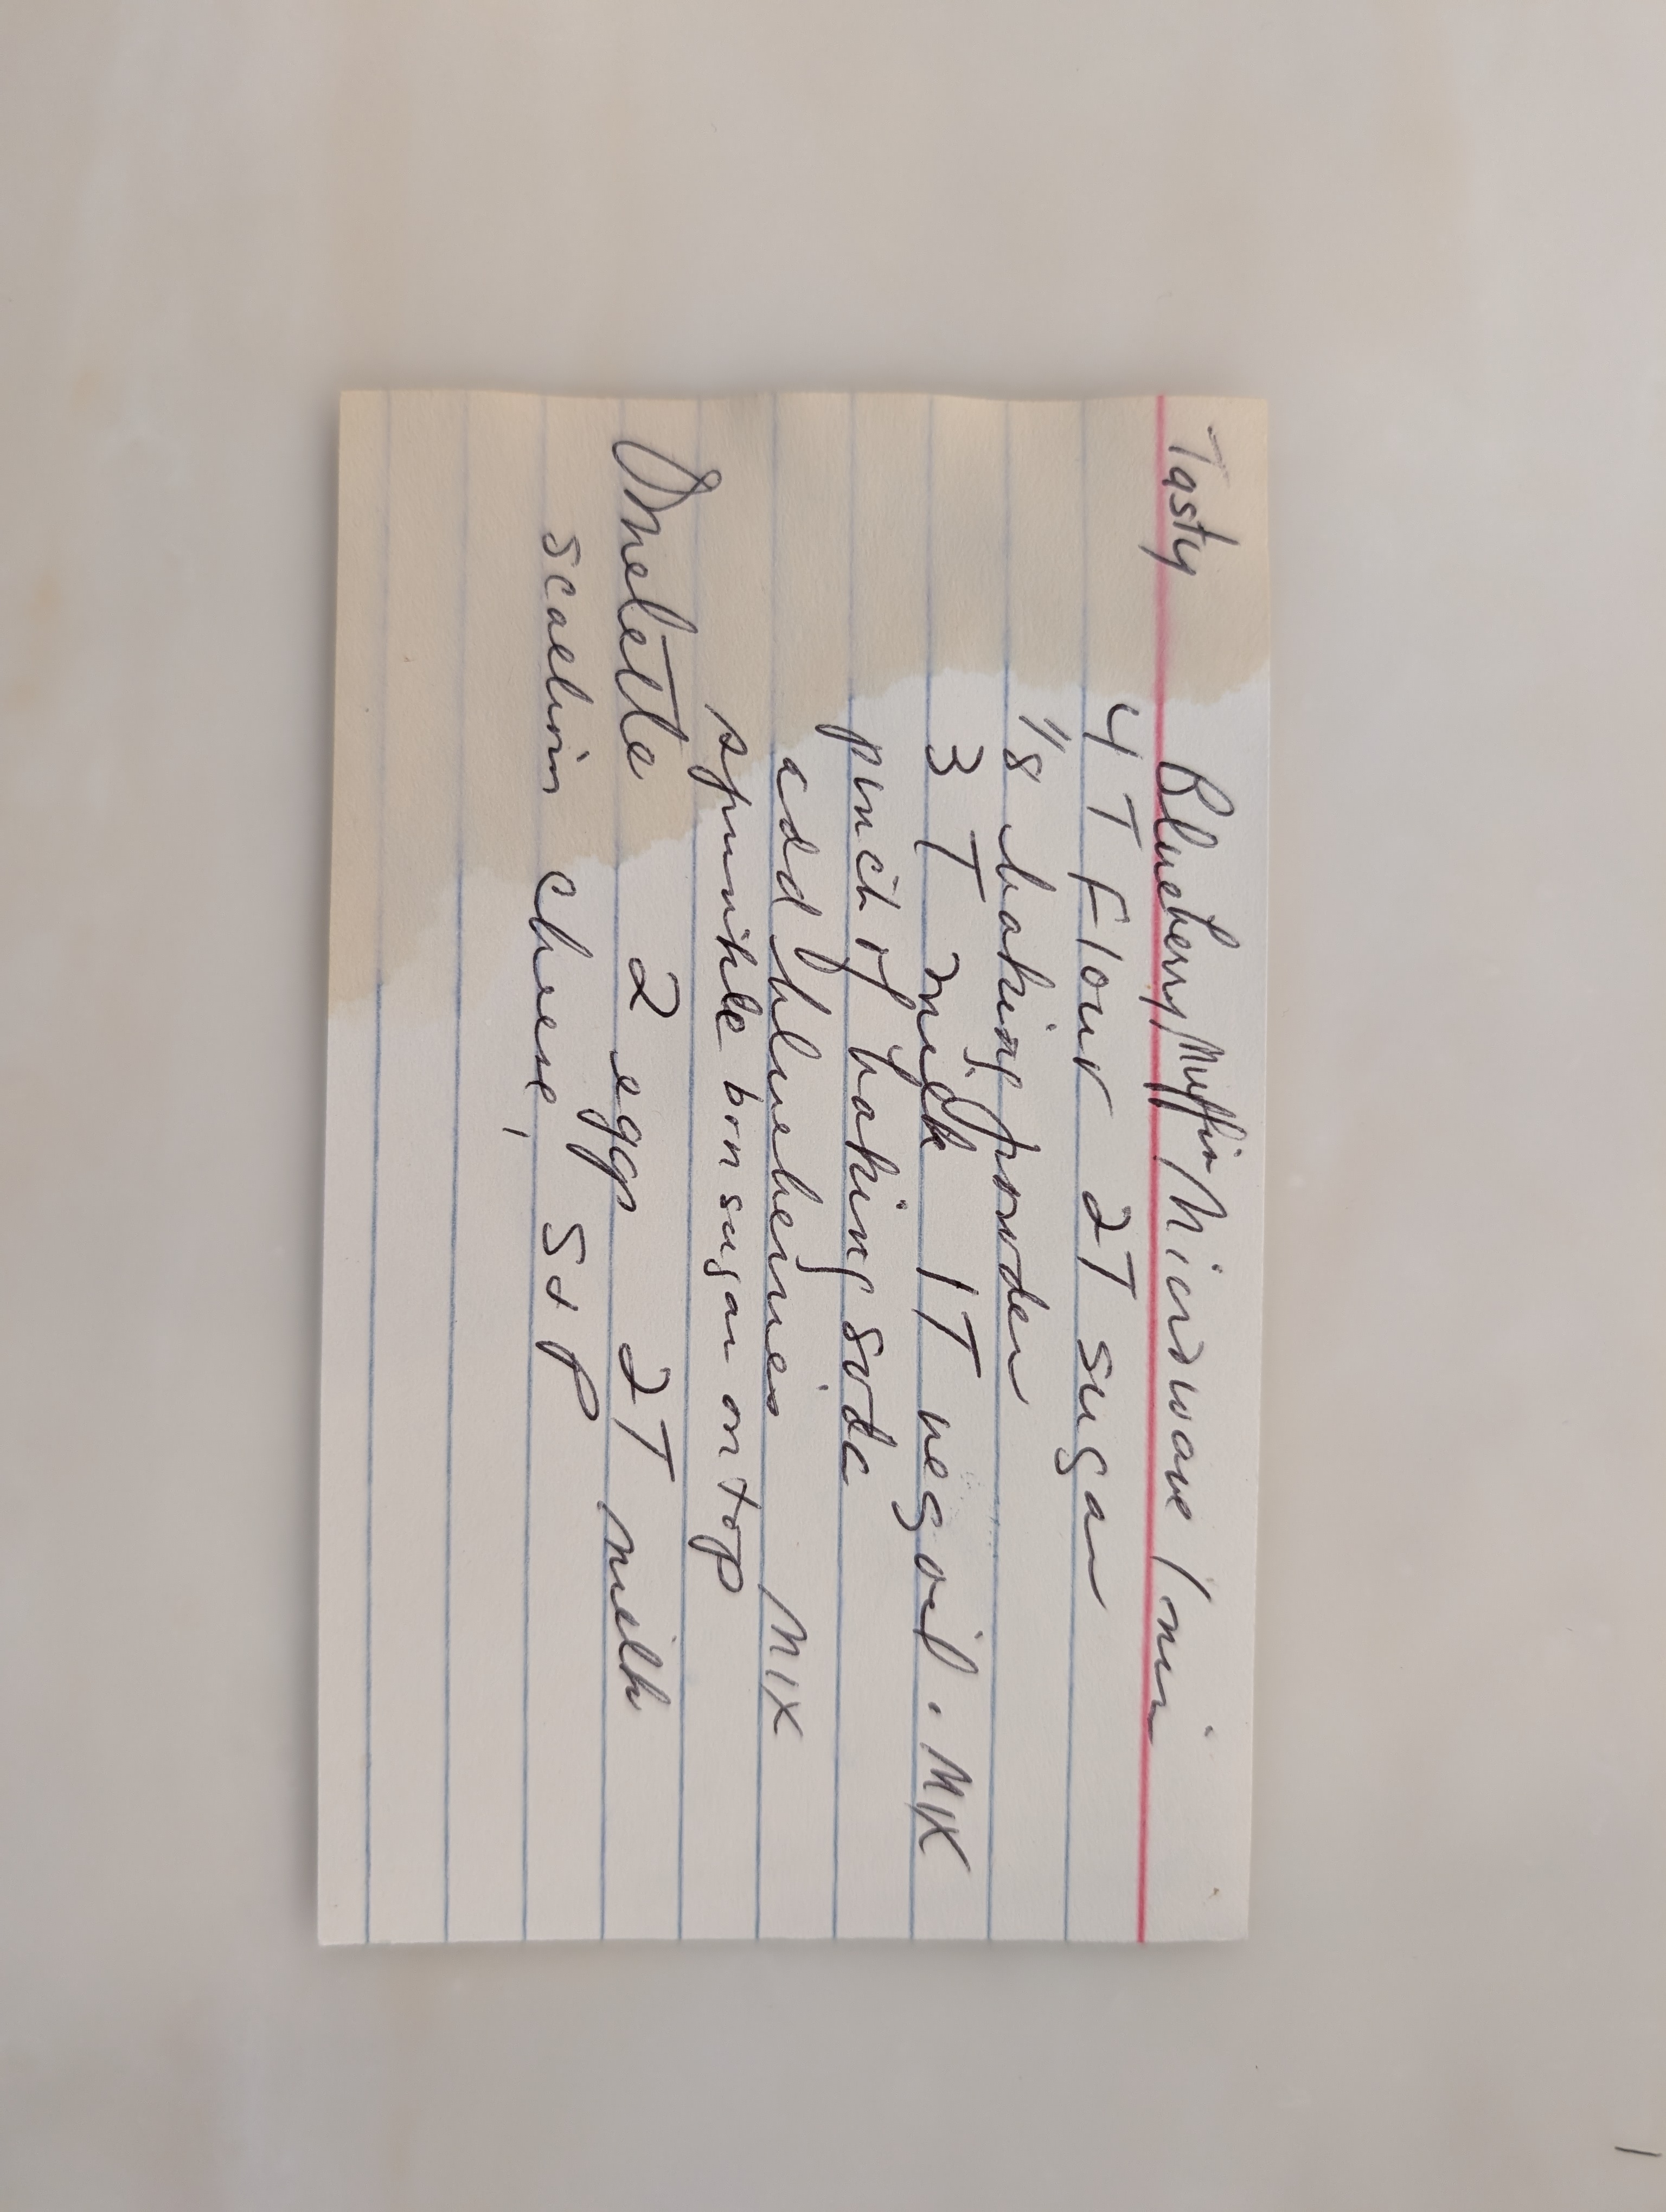 Tasty Blueberry Muffin Microwave 1 min
4 T Flour 2T sugar
1/8 baking powder
3 T milk 1T veg oil. MIX
pinch of baking soda
add blueberries MIX
sprinkle brn sugar on top
Omelette 2 eggs 2T milk
scallion cheese, S+P